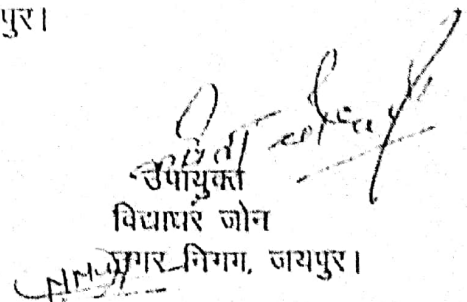 पुर।
उपायुक्त
विद्याधर जोन
नगर निगम, जयपुर।